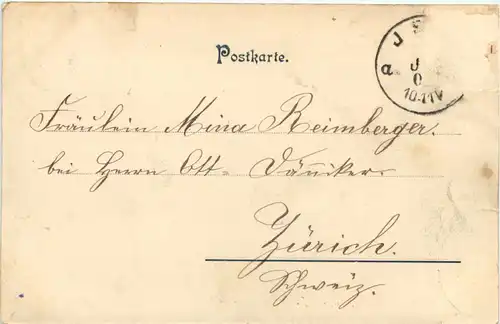 Postkarte.
J
a J
0
10-11V
Fräulein Mina Reimberger.
bei Herrn Ott-Däniker
Zürich.
Schweiz.